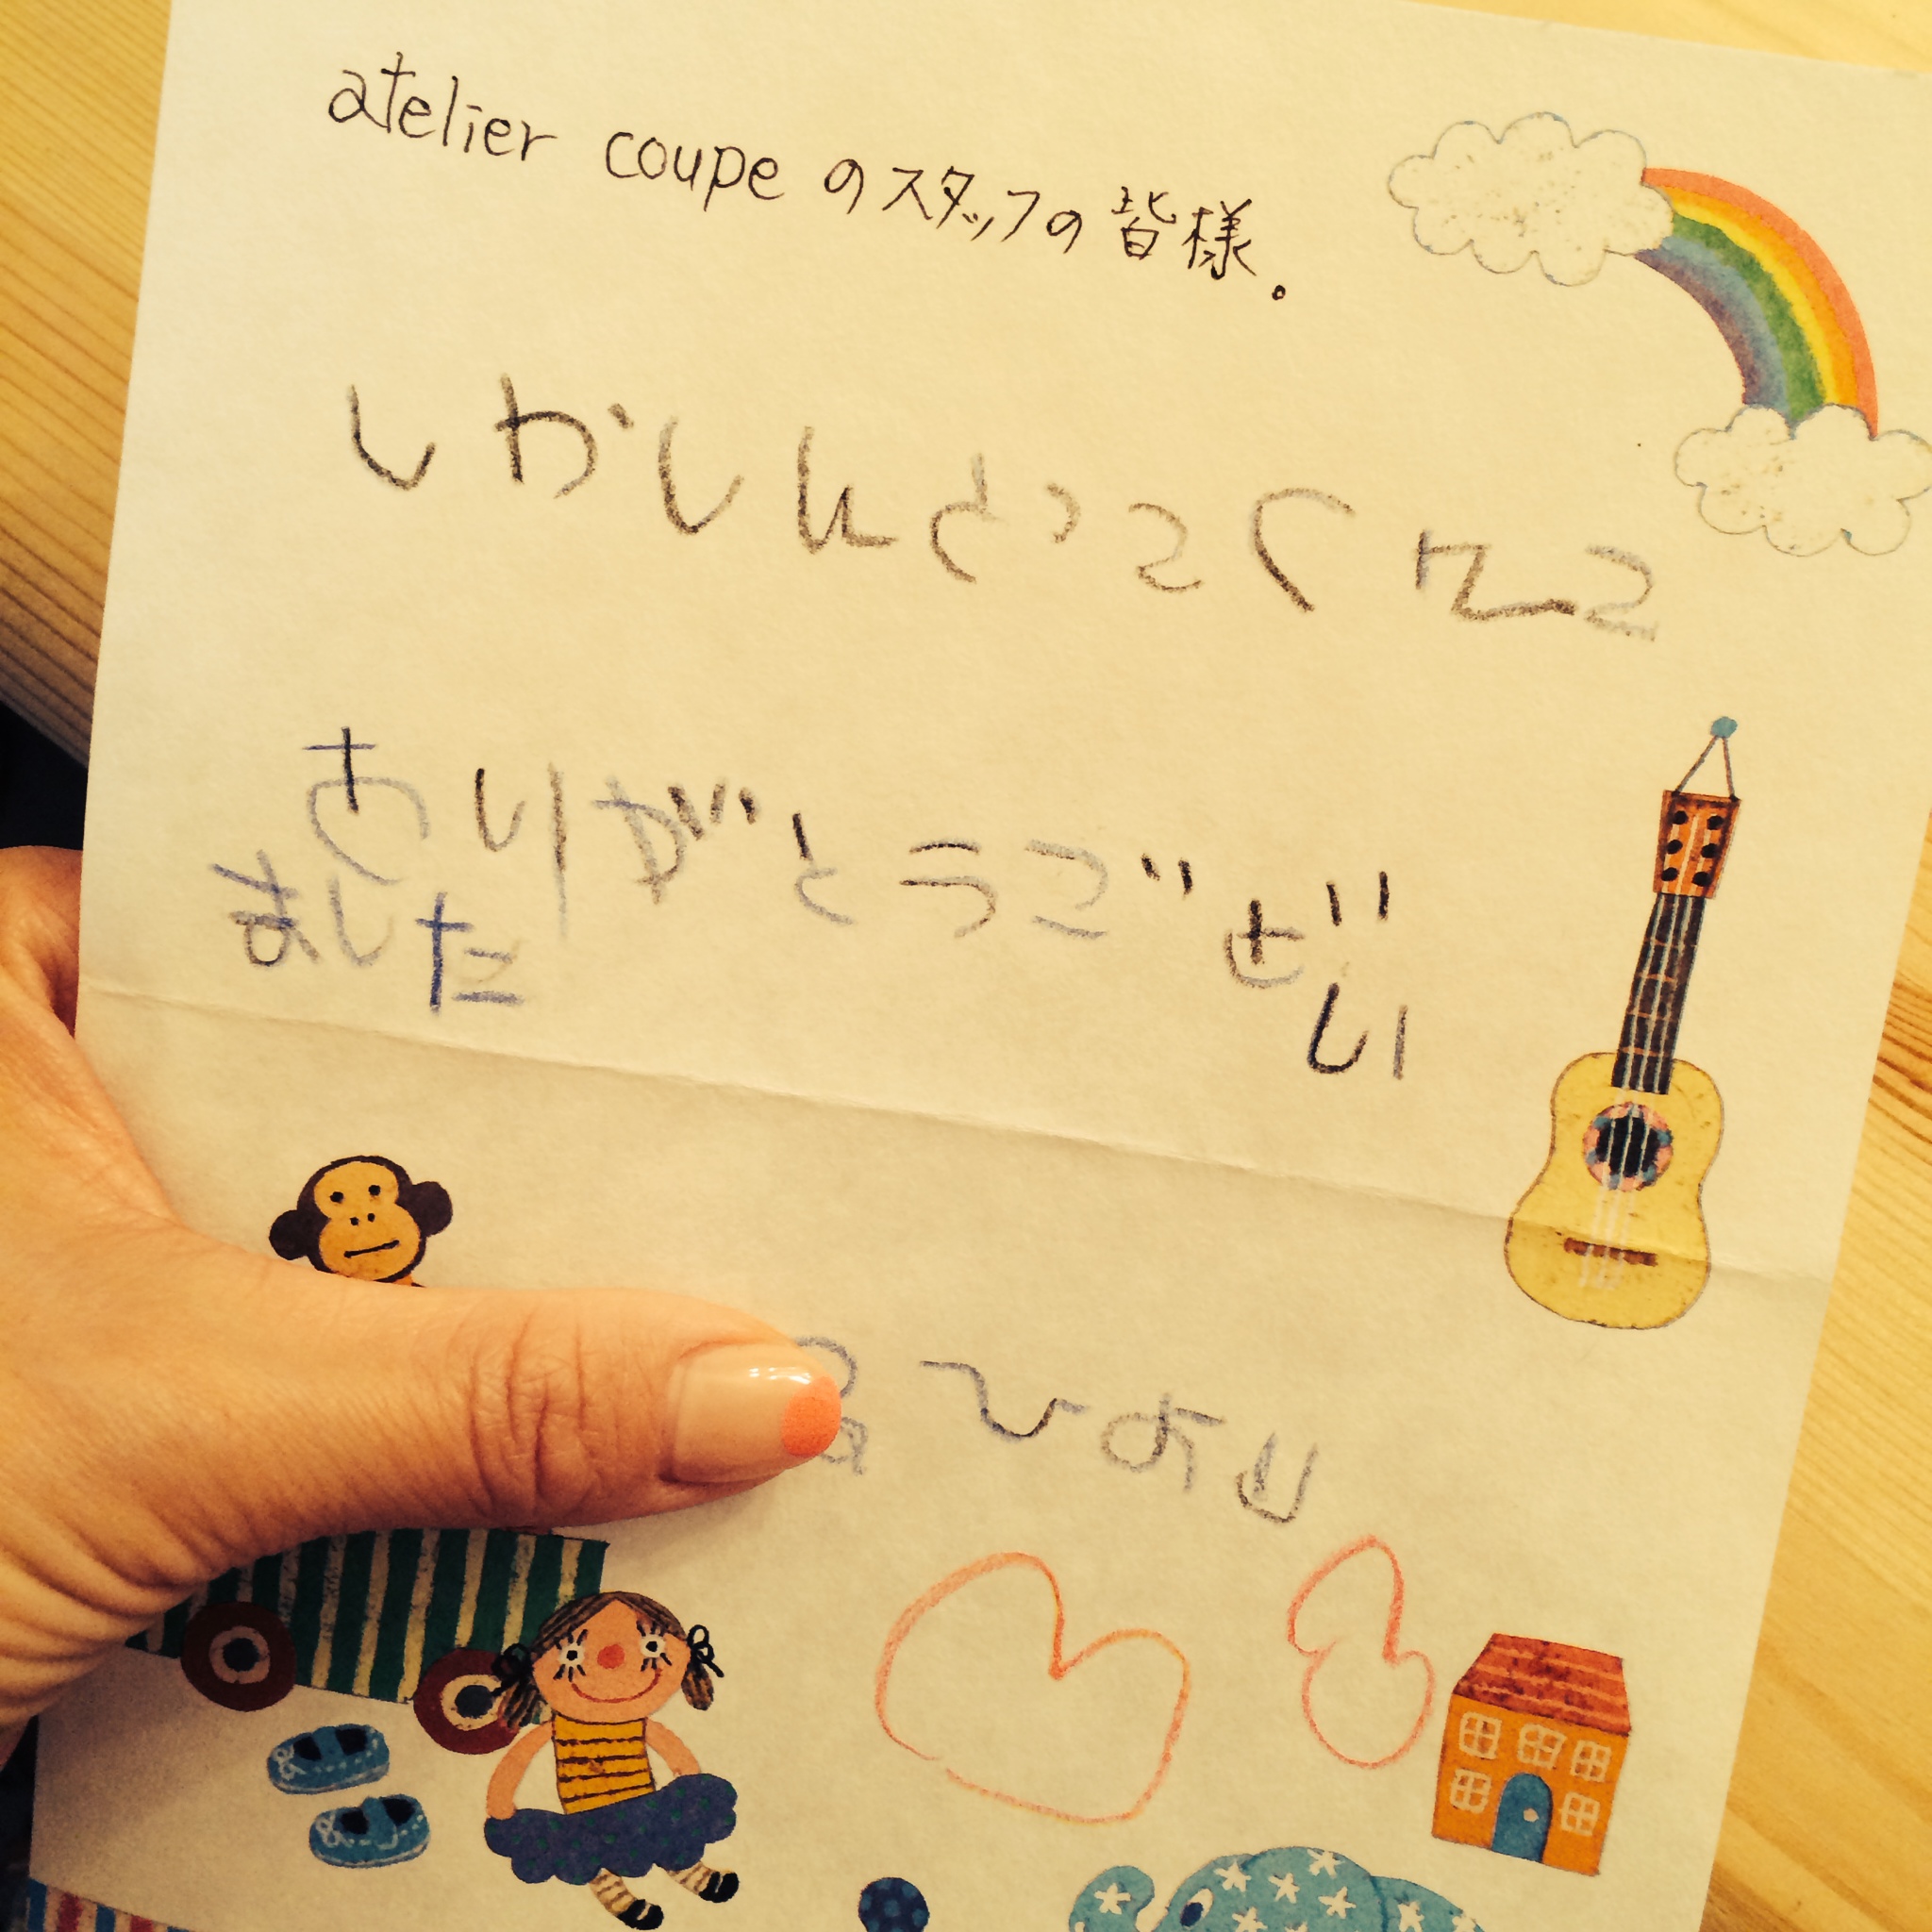 atelier coupe のスタッフの皆様。
しかしんとってくれて
ありがとうござい
ました